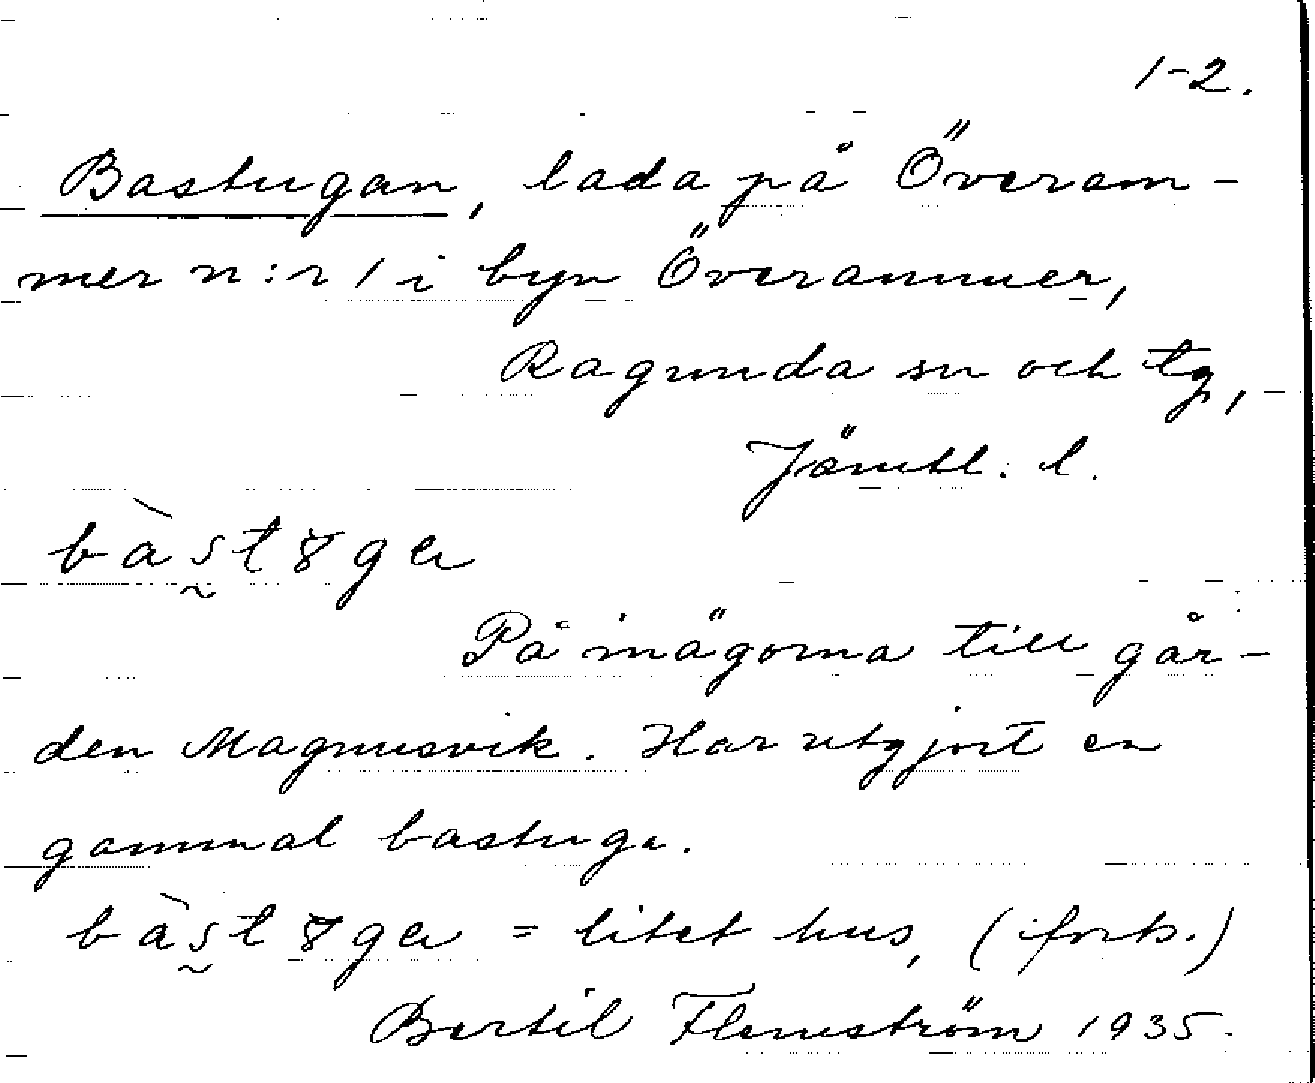 1-2.
Bastugan, lada på Överam-
mer n:r 1 i byn Överammer,
Ragunda sn och tg,
Jämtl. l.
På inägorna till går-
den Magnusvik. Har utgjort en
gammal bastuga.
= litet hus, (
Bertil Flemström 1935.